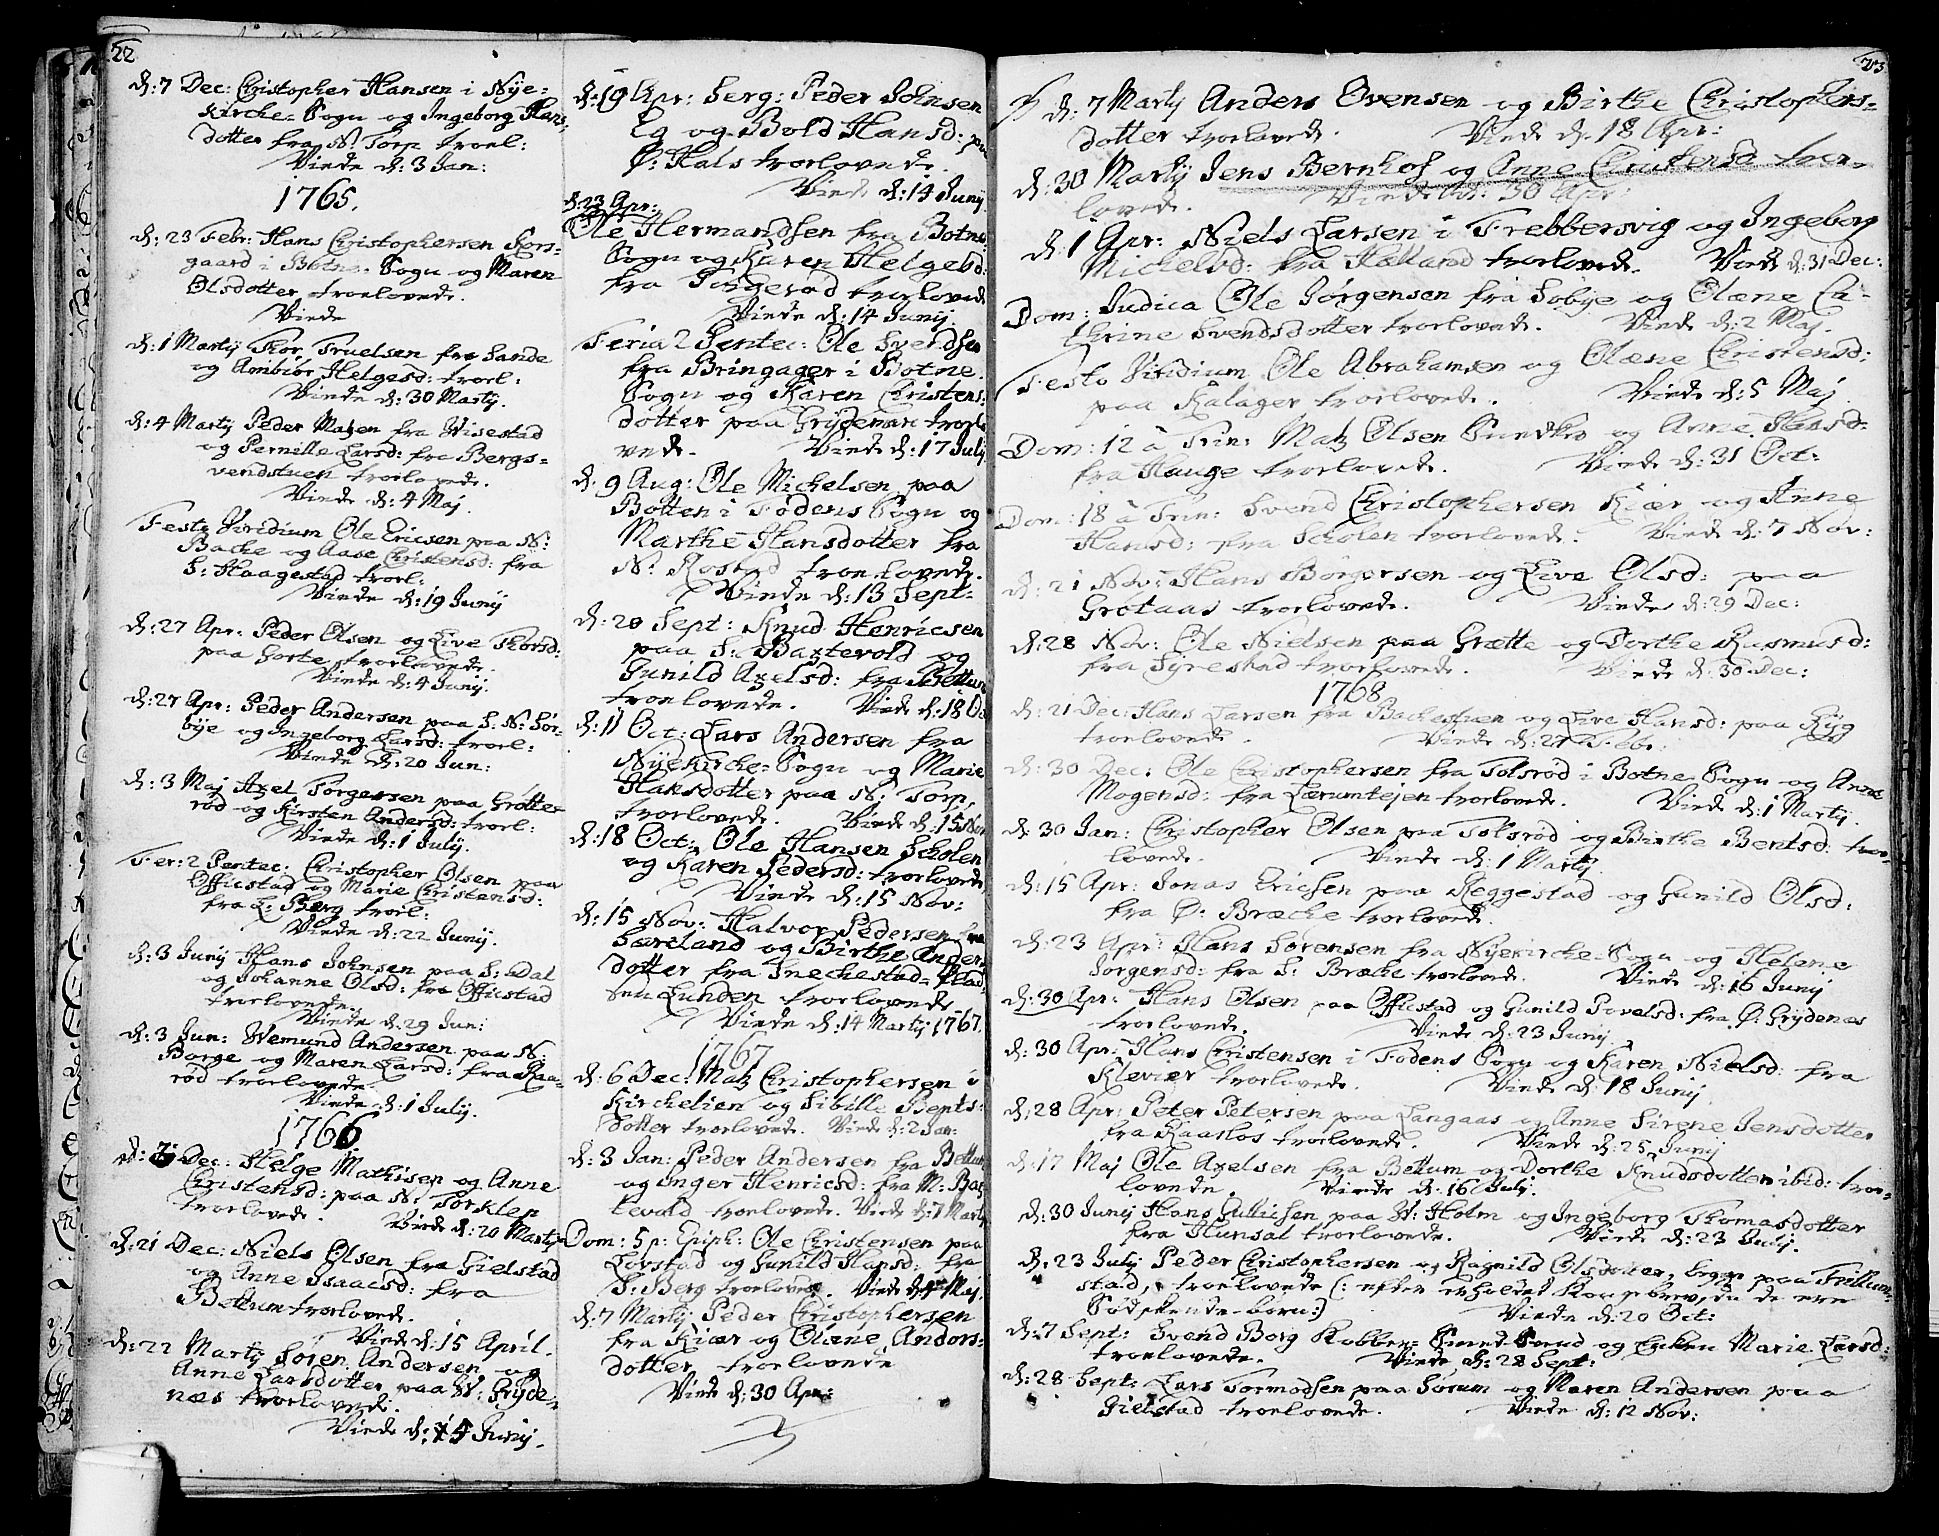 22
d: 7 Dec: Christopher Hansen i Nye=
kirche-Sogn og Ingeborg Hans
dotter fra N: Torp troel:
Viede d: 3 Jan:
1765.
d: 23 Febr: Hans Christophersen Kors=
gaard i Botne-Sogn og Maren
Olsdotter troelovede.
Viede
d: 1 Martij Thor Truelsen fra Sande
og Ambior Helgesd: troel:
Viede d: 30 Martij.
d: 4 Martij Peder Matzen fra Visestad
og Pernille Larsd: fra Bergs=
vendstuen troelovede.
Viede d: 4 Maj.
Festo Viridium Ole Ericsen paa N:
Bache og Aase Christensd: fra
S: Haagestad troel:
Viede d: 19 Junij
d: 27 Apr: Peder Olsen og Live Thorsd:
paa Gorte troelovede.
Viede d: 4 Junij.
d: 27 Apr: Peder Andersen paa S: N: Sør-
bÿe og Ingeborg Larsd: troel:
Viede d: 20 Jun:
d: 3 Maj Axel Torgersen paa Grotte
rød og Kirsten Andersd: troel:
Viede d: 1 Julij.
Fer: 2 Pentec: Christopher Olsen paa
Offigstad og Marie Christensd:
fra L: Berg troel:
Viede d: 22 Junij.
d: 3 Junij Hans Johnsen paa S: Dal
og Johanne Olsd: fra Offigstad
troelovede.
Viede d: 29 Jun:
d: 3 Jun: Wemund Andersen paa N:
Borge og Maren Larsd: fra Raa-
rød troelovede.
Viede d: 1 Julij.
1766
d: Dec: Helge Mathisen og Anne
Christensd: paa N: Torklep
troelovede.
Viede d: 20 Martij
d: 21 Dec: Niels Olsen fra Gielstad
og Anne Isaacsd: fra
Bettum troelovede.
Viede d: 15 April.
d: 22 Martij Søren Andersen og
Anne Larsdotter paa W: Gryde-
næs troelovede.
Viede d: 15 Junij.
d: 19 Apr: Serg: Peder Johnsen
Eg og Bold Hansd: paa
Ø: Hals troelovede.
Viede d: 14 Junij.
d: 23 Apr:
Ole Hermandsen fra Botne
Sogn og Karen Helgesd:
fra Torgestad troelovede
Viede d: 14 Junij
Feria 2 Pentec: Ole Svendsen
fra Bringager i Botne
Sogn og Karen Christens
dotter paa Grydemari troelo
vede. Viede d: 17 Julij
d: 9 Aug: Ole Michelsen paa
Botten i Fodens Sogn og
Marthe Hansdotter fra
N: Rostad troelovede.
Viede d: 13 Sept:
d: 20 Sept: Knud Henricsen
paa S: Baxtevold og
Gunild Axelsd: fra Bettum
troelovede. Viede d: 18 Oc
d: 11 Oct: Lars Andersen fra
Nÿekirche-Sogn og Marie
Hansdotter paa N: Torp
troelovede. Viede d: 15 Nov
d: 18 Oct: Ole Hansen Scholen
og Karen Pedersd: troelovede
Viede d: 15 Nov:
d: 15 Nov: Halvor Pedersen fra
Særeland og Birthe Anders
dotter fra Snechestad-Plad
sen Lunden troelovede
Viede d: 14 Martij 1767.
1767
d: 6 Dec: Matz Christophersen i
Kirchelien og Sibille Bents-
dotter troelovede. Viede d: 2 Jan:
d: 3 Jan: Peder Andersen fra Bettum
og Inger Henricsd: fra M: Bax
tevold troelovede. Viede d: 7 Martij
Dom: 5 p: Epiph: Ole Christensen paa
Lovstad og Gunild Hansd: fra
S: Berg troelovede. Viede d: Maj.
d: 7 Martij Peder Christophersen
fra Kiær og Olæne Anders=
dotter troelovede
Viede d: 30 Apr:
23
d: 7 Martij Anders Evensen og Birthe Christophers=
dotter troelovede. Viede d: 18 Apr:
d: 30 Martij Jens Bernhof og Anne Christensd troe-
lovede. Viede d: 30 Apr:
d: 1 Apr: Niels Larsen i Trebbersvig og Ingeborg
Michelsd: fra Hætland troelovede. Viede d: 31 Dec:
Dom: Judica Ole Jørgensen fra Sobye og Olæne Ca-
thrine Svendsdotter troelovede. Viede d: 2 Maj.
Festo Viridium Ole Abrahamsen og Olæne Christensd:
paa Kalager troelovede. Viede d: 5 Maj
Dom: 12 a Trin: Matz Olsen Sundbye og Anne Hansd:
fra Hauge troelovede. Viede d: 31 Oct:
Dom: 18 a Trin: Svend Christophersen Kiær og Anne
Hansd: fra Scholen troelovede. Viede d: 7 Nov:
d: 21 Nov: Hans Borgersen og Live Olsd: paa
Grotaas troelovede. Viede d: 29 Dec:
d: 28 Nov: Ole Nielsen paa Grette og Dorthe Rasmusd:
fra Syrestad troelovede. Viede d: 30 Dec:
1768
d: 21 Dec: Hans Larsen fra Bachestuen og Live Hansd: paa Ryg
troelovede. Viede d: 27 Febr:
d: 30 Dec: Ole Christophersen fra Tolsrod i Botne Sogn og Anne
Mogensd: fra Lærumtejen troelovede. Viede d: 1 Martij.
d: 30 Jan: Christopher Olsen paa Tolsrod og Birthe Bentsd: troe-
lovede. Viede d: 1 Martij.
d: 15 Apr: Jonas Ericsen paa Reggestad og Gunild Olsd:
fra Ø: Bræche troelovede.
d: 23 Apr: Hans Sorensen fra Nÿekirche-Sogn og Helene
Jorgensd: fra S: Bræche troelovede. Viede d: 16 Junij
d: 30 Apr: Hans Olsen paa Offigstad og Gunild Povelsd: fra Ø: Grydenæs
troelovede. Viede d: 23 Junij.
d: 30 Apr: Hans Christensen i Fodens Sogn og Karen Nielsd: fra
Klevier troelovede. Viede d: 18 Junij.
d: 28 Apr: Peter Petersen paa Langaas og Anne Sirene Jensdotter
fra Kaaslos troelovede. Viede d: 25 Junij
d: 17 Maj Ole Axelsen fra Bettum og Dorthe Knudsdotter ibid: troe-
lovede. Viede d: 16 Julij.
d: 30 Junij Hans Ullicsen paa W: Holm og Ingeborg Thomasdotter
fra Hunsal troelovede. Viede d: 23 Julij.
d: 23 Julij Peder Christophersen og Ragnild Olsdotter, begge paa Frillum-
stad, troelovede (: efter erholdet Kongebrev, da de ere
Sødskende-born:) Viede d: 20 Oct:
d: 7 Sept: Svend Borg Kobber-Smed-Svend og Enken Marie Larsd:
troelovede. Viede d: 28 Sept:
d: 28 Sept: Lars Tormodsen paa Sørum og Maren Andersen paa
Gielstad troelovede. Viede d: 12 Nov: